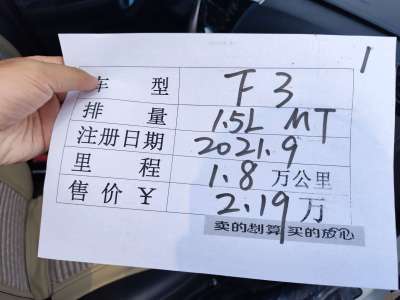 1
车 型 F3
排 量 1.5L MT
注册日期 2021.9
里 程 1.8 万公里
售 价 ¥ 2.19 万
卖的划算 买的放心